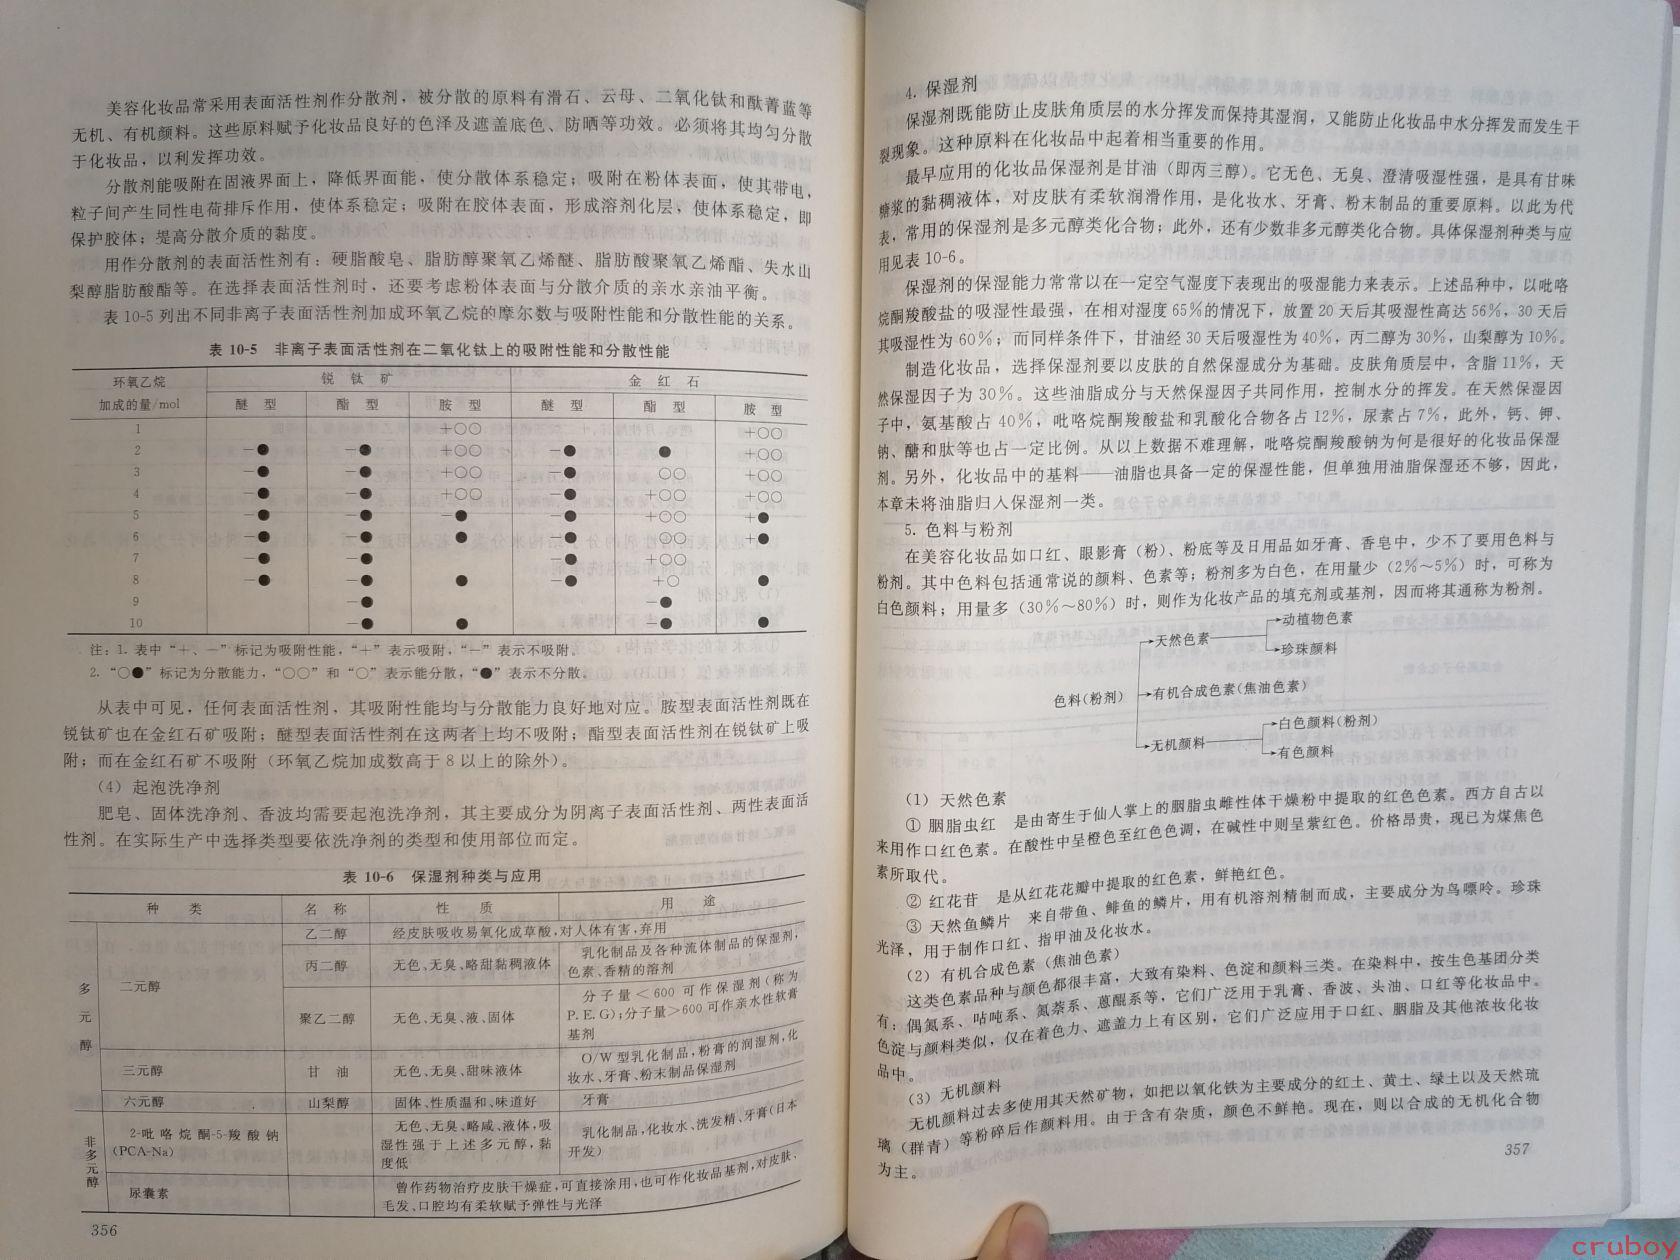 美容化妆品常采用表面活性剂作分散剂，被分散的原料有滑石、云母、二氧化钛和酞菁蓝等
无机、有机颜料。这些原料赋予化妆品良好的色泽及遮盖底色、防晒等功效。必须将其均匀分散
于化妆品，以利发挥功效。
分散剂能吸附在固液界面上，降低界面能，使分散体系稳定；吸附在粉体表面，使其带电，
粒子间产生同性电荷排斥作用，使体系稳定；吸附在胶体表面，形成溶剂化层，使体系稳定，即
保护胶体；提高分散介质的黏度。
用作分散剂的表面活性剂有：硬脂酸皂、脂肪醇聚氧乙烯醚、脂肪酸聚氧乙烯酯、失水山
梨醇脂肪酸酯等。在选择表面活性剂时，还要考虑粉体表面与分散介质的亲水亲油平衡。
表 10-5 列出不同非离子表面活性剂加成环氧乙烷的摩尔数与吸附性能和分散性能的关系。
表 10-5 非离子表面活性剂在二氧化钛上的吸附性能和分散性能
环氧乙烷 锐 钛 矿 金 红 石
加成的量/mol 醚 型 酯 型 胺 型 醚 型 酯 型 胺 型
1 +○○ +○○
2 −● −● +○○ −● ● +○○
3 −● −● +○○ −● ○○ +○○
4 −● −● +○○ −● +○○ +○○
5 −● −● −● −● +○○ +●
6 −● −● ● −● +○○ +●
7 −● −● −● +○○
8 −● −● ● −● +○ ●
9 −● −●
10 −● ● −● ●
注：1. 表中“+、−”标记为吸附性能，“+”表示吸附，“−”表示不吸附。
2. “○●”标记为分散能力，“○○”和“○”表示能分散，“●”表示不分散。
从表中可见，任何表面活性剂，其吸附性能均与分散能力良好地对应。胺型表面活性剂既在
锐钛矿也在金红石矿吸附；醚型表面活性剂在这两者上均不吸附；酯型表面活性剂在锐钛矿上吸
附；而在金红石矿不吸附（环氧乙烷加成数高于 8 以上的除外）。
（4）起泡洗净剂
肥皂、固体洗净剂、香波均需要起泡洗净剂，其主要成分为阴离子表面活性剂、两性表面活
性剂。在实际生产中选择类型要依洗净剂的类型和使用部位而定。
表 10-6 保湿剂种类与应用
种 类 名 称 性 质 用 途
多元醇 二元醇 乙二醇 经皮肤吸收易氧化成草酸，对人体有害，弃用
丙二醇 无色、无臭、略甜黏稠液体 乳化制品及各种流体制品的保湿剂，
色素、香精的溶剂
聚乙二醇 无色、无臭、液、固体 分子量＜600 可作保湿剂（称为
P.E.G）；分子量＞600 可作亲水性软膏
基剂
三元醇 甘 油 无色、无臭、甜味液体 O/W 型乳化制品，粉膏的润湿剂，化
妆水、牙膏、粉末制品保湿剂
六元醇 山梨醇 固体、性质温和、味道好 牙膏
非多元醇 2-吡咯烷酮-5-羧酸钠
(PCA-Na) 无色、无臭、略咸、液体，吸
湿性强于上述多元醇，黏
度低 乳化制品，化妆水、洗发精、牙膏（日本
开发）
尿囊素 曾作药物治疗皮肤干燥症，可直接涂用，也可作化妆品基剂，对皮肤、
毛发、口腔均有柔软赋予弹性与光泽
356
4. 保湿剂
保湿剂既能防止皮肤角质层的水分挥发而保持其湿润，又能防止化妆品中水分挥发而发生干
裂现象。这种原料在化妆品中起着相当重要的作用。
最早应用的化妆品保湿剂是甘油（即丙三醇）。它无色、无臭、澄清吸湿性强，是具有甘味
糖浆的黏稠液体，对皮肤有柔软润滑作用，是化妆水、牙膏、粉末制品的重要原料。以此为代
表，常用的保湿剂是多元醇类化合物；此外，还有少数非多元醇类化合物。具体保湿剂种类与应
用见表 10-6。
保湿剂的保湿能力常常以在一定空气湿度下表现出的吸湿能力来表示。上述品种中，以吡咯
烷酮羧酸盐的吸湿性最强，在相对湿度 65％的情况下，放置 20 天后其吸湿性高达 56％，30 天后
其吸湿性为 60％；而同样条件下，甘油经 30 天后吸湿性为 40％，丙二醇为 30％，山梨醇为 10％。
制造化妆品，选择保湿剂要以皮肤的自然保湿成分为基础。皮肤角质层中，含脂 11％，天
然保湿因子为 30％。这些油脂成分与天然保湿因子共同作用，控制水分的挥发。在天然保湿因
子中，氨基酸占 40％，吡咯烷酮羧酸盐和乳酸化合物各占 12％，尿素占 7％，此外，钙、钾、
钠、醣和肽等也占一定比例。从以上数据不难理解，吡咯烷酮羧酸钠为何是很好的化妆品保湿
剂。另外，化妆品中的基料——油脂也具备一定的保湿性能，但单独用油脂保湿还不够，因此，
本章未将油脂归入保湿剂一类。
5. 色料与粉剂
在美容化妆品如口红、眼影膏（粉）、粉底等及日用品如牙膏、香皂中，少不了要用色料与
粉剂。其中色料包括通常说的颜料、色素等；粉剂多为白色，在用量少（2％～5％）时，可称为
白色颜料；用量多（30％～80％）时，则作为化妆产品的填充剂或基剂，因而将其通称为粉剂。
动植物色素
天然色素
珍珠颜料
色料（粉剂） 有机合成色素（焦油色素）
白色颜料（粉剂）
无机颜料
有色颜料
（1）天然色素
① 胭脂虫红 是由寄生于仙人掌上的胭脂虫雌性体干燥粉中提取的红色色素。西方自古以
来用作口红色素。在酸性中呈橙色至红色色调，在碱性中则呈紫红色。价格昂贵，现已为煤焦色
素所取代。
② 红花苷 是从红花花瓣中提取的红色素，鲜艳红色。
③ 天然鱼鳞片 来自带鱼、鲱鱼的鳞片，用有机溶剂精制而成，主要成分为鸟嘌呤。珍珠
光泽，用于制作口红、指甲油及化妆水。
（2）有机合成色素（焦油色素）
这类色素品种与颜色都很丰富，大致有染料、色淀和颜料三类。在染料中，按生色基团分类
有：偶氮系、呫吨系、氮萘系、蒽醌系等，它们广泛用于乳膏、香波、头油、口红等化妆品中。
色淀与颜料类似，仅在着色力、遮盖力上有区别，它们广泛应用于口红、胭脂及其他浓妆化妆
品中。
（3）无机颜料
无机颜料过去多使用其天然矿物，如把以氧化铁为主要成分的红土、黄土、绿土以及天然琉
璃（群青）等粉碎后作颜料用。由于含有杂质，颜色不鲜艳。现在，则以合成的无机化合物
为主。
357
cruboy